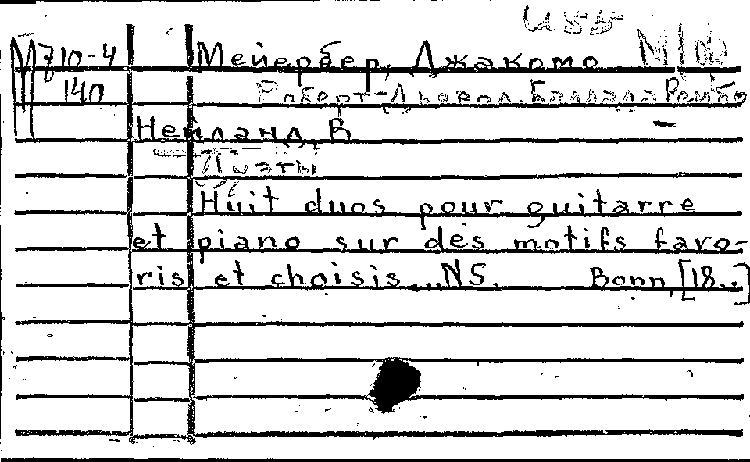 М 310-4 Мейербер, Джакомо М/ф
140 Роберт-Дьявол. Баллада Рембо
Нейланд, В
Дуэты
Huit duos pour guitarre
et piano sur des motifs favo-
ris et choisis... N5. Bonn, [18..]